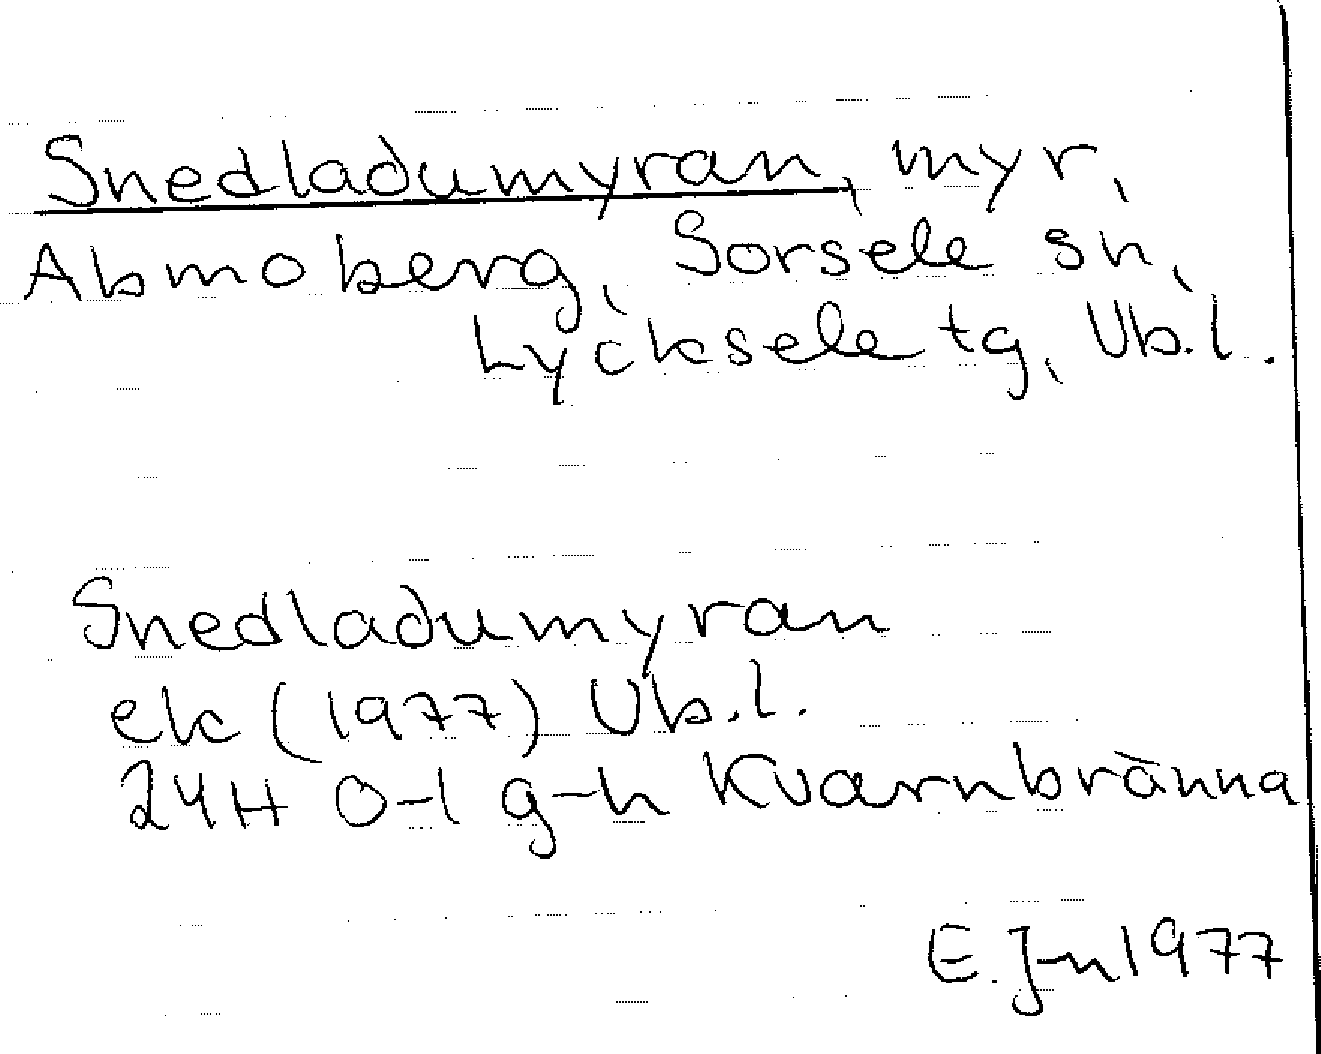 Snedladumyran, myr,
Abmoberg, Sorsele sn,
Lycksele tg, Vb.l.
Snedladumyran
ek (1977) Vb.l.
24H 0-1 g-h Kvarnbränna
E. J-n 1977